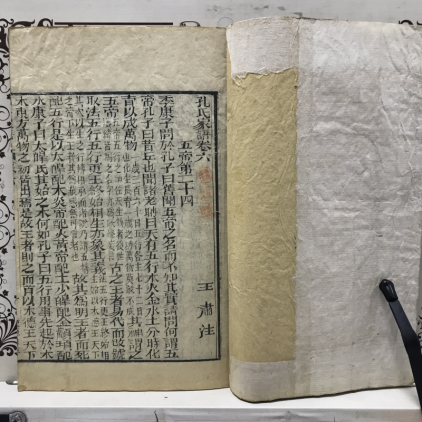 孔氏家語卷六
五帝第二十四
王肅注
季康子問於孔子曰舊聞五帝之名而不知其實請問何謂五
帝孔子曰昔丘也聞諸老聃曰天有五行木火金水土分時化
育以成萬物其神謂之
五帝古之王者易代而改號
取法五行五行更王終始相生亦象其義故其為明王者而死
配五行是以太皞配木炎帝配火黃帝配土少皞配金顓頊配
水康子曰太皞氏其始之木何如孔子曰五行用事先起於木
木東方萬物之初皆出焉是故王者則之而首以木德王天下